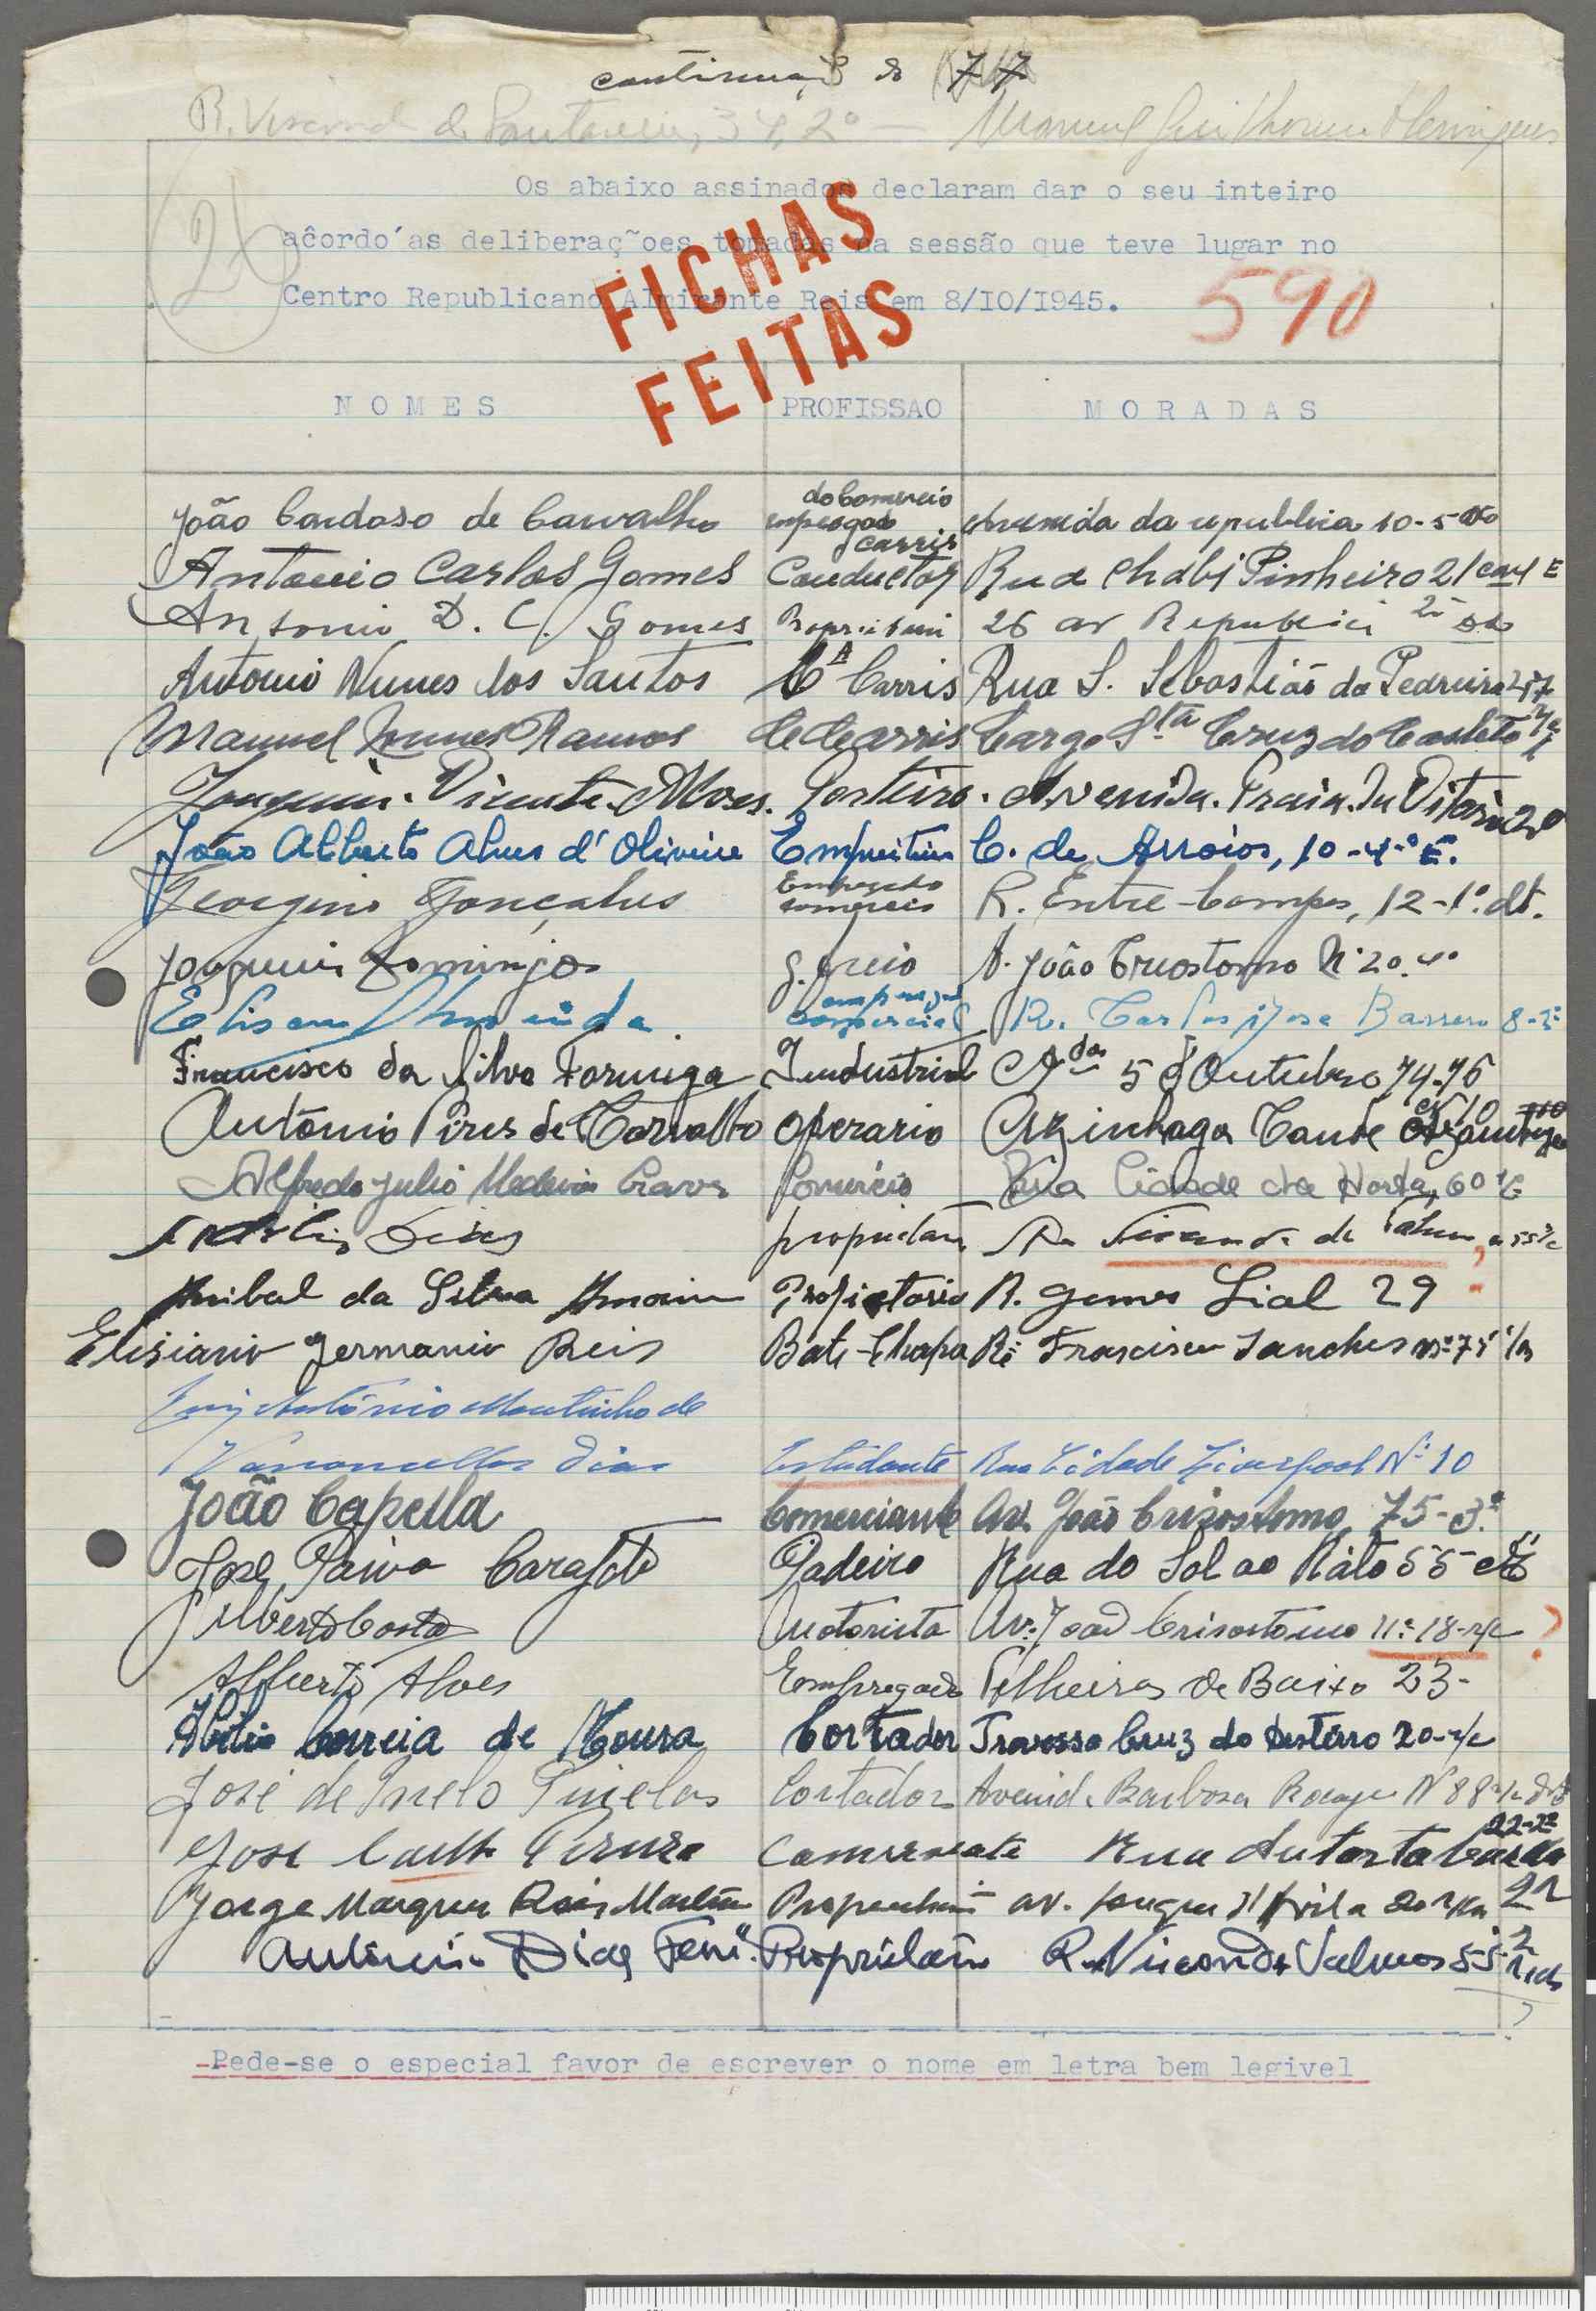 continuação de 77
R. Visconde de Santarem, 34, 2º — Manuel Guilherme Henriques
26
Os abaixo assinados declaram dar o seu inteiro
acôrdo ´as deliberaç~oes tomadas na sessão que teve lugar no
Centro Republicano Almirante Reis em 8/IO/I945.
FICHAS
FEITAS
590
NOMES PROFISSAO MORADAS
João Cardoso de Carvalho empregado do Comercio Avenida da republica 10-5
Antonio Carlos Gomes Conductor carris Rua Chabi Pinheiro 21 cave E
Antonio D. C. Gomes 26 av Republica
Antonio Nunes dos Santos Cª Carris Rua S. Sebastião da Pedreira 217
Manuel Nunes Ramos Cª Carris Largo Stª Cruz do Castelo
Joaquim Vicente Alves. Porteiro. Avenida. Praia. Da Vitoria 20
João Alberto Alves d'Oliveira Empreiteiro C. de Arroios, 10-4º E.
Georgino Gonçalves Empregado comercio R. Entre-Campos, 12-1º. dt.
Joaquim Domingos A. João Crisostomo Nº 20
Elisa Almeida empregad comercial R. Carlos José Barreiro 8-2º
Francisco da Silva Formiga Industrial Avda 5 d'Outubro 74-76
António Pires de Carvalho operario Azinhaga
Alfredo Julio Medeiros Cravo Comércio Rua Cidade da Horta, 60
propietario
Anibal da Silva Amorim Propietario R. Gomes Lial 29
Elisiario Germanio Reis Bate-Chapa Rª Francisco Sanches nº 75
Luiz António Moutinho de
Vasconcellos Dias Estudante Rua Cidade Liverpool Nº 10
João Capella Comerciante Av. João Crizostomo, 75-3.º
José Paiva Padeiro Rua do Sol ao Rato 55
Alberto Costa Motorista Av. João Crisostomo nº 18-r/c ?
Alberto Alves Empregado Telheiras de Baixo 23-
Abilio Correia de Moura Cortador Travessa Cruz do Desterro 20-r/c
José de Melo Cortador Avenida Barbosa Bocage Nº 88
José Comerciante Rua 22-2º
Jorge Marques Reis Martins av. Duque d'Avila
Dias Proprietario R. Visconde Valmor 55
Pede-se o especial favor de escrever o nome em letra bem legivel